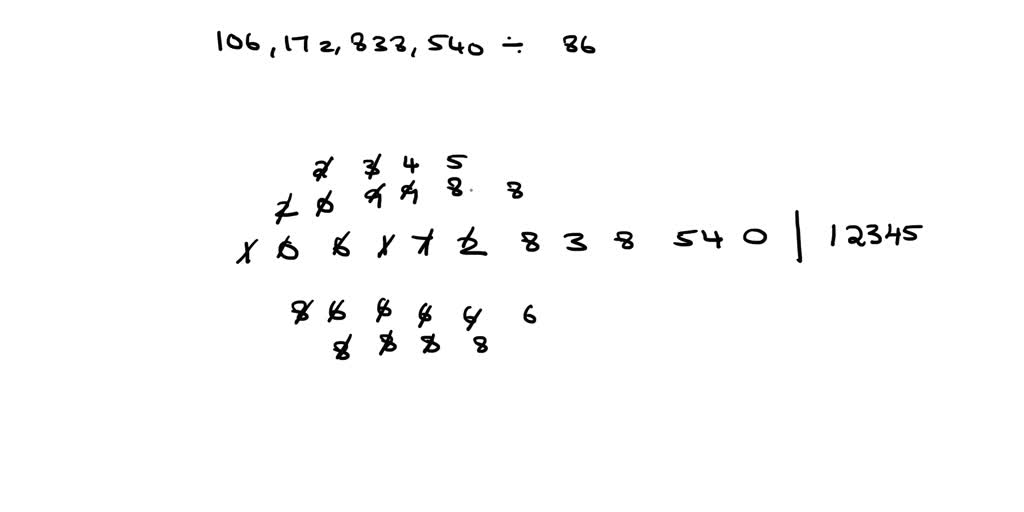 106,172,833,540 ÷ 86
2 3 4 5
2 0 9 9 8 8
1 0 6 1 7 2 8 3 8 5 4 0 | 12345
8 6 6 6 6 6
8 8 8 8